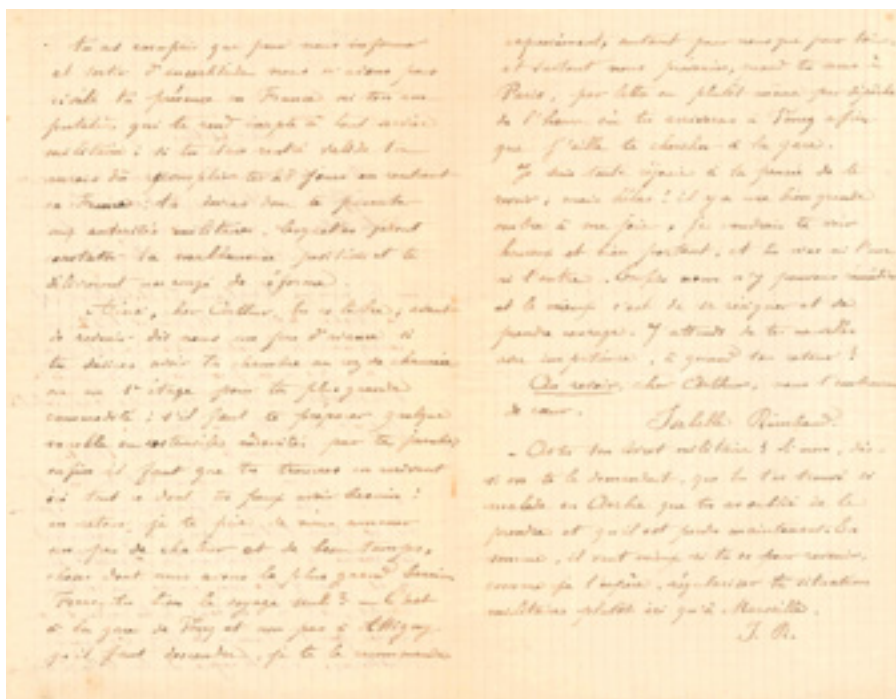 tu as compris que pour nous informer
et sortir d'incertitude nous n'avions pas
révélé ta présence en France ni ton am-
putation qui te rend inapte à tout service
militaire ; si tu étais resté valide tu
aurais dû accomplir tes 28 jours en rentrant
en France. tu devras donc te présenter
aux autorités militaires, lesquelles
constater ta malheureuse position et te
délivreront un congé de réforme.
cher Arthur, avant
de revenir dis nous un peu d'avance si
tu désires avoir ta chambre au rez de chaussée
ou au 1er étage pour ta plus grande
commodité ; s'il faut te préparer quelque
meuble ou ustensiles nécessités par ta jambe
enfin il faut que tu trouves en arrivant
ici tout ce dont tu peux avoir besoin ;
en retour, je te prie de nous amener
un peu de chaleur et de beau temps,
choses dont nous avons le plus grand besoin
Feras-tu bien le voyage seul ? — C'est
à la gare de Voncq et non pas à Attigny
qu'il faut descendre, je te le recommande
expressément, autant pour nous que pour toi
et surtout nous prévenir, mande tu nous à
Paris, par lettre ou plutôt même par dépêche
de l'heure où tu arriveras à Voncq afin
que j'aille te chercher à la gare.
Je suis toute réjouie à la pensée de te
revoir ; mais hélas ! il y a une bien grande
ombre à ma joie, je voudrais te voir
heureux et bien portant, et tu n'es ni l'un
ni l'autre. Enfin nous n'y pouvons
et le mieux c'est de se résigner et de
prendre courage. J'attends de tes nouvelles
avec impatience, à quand ton retour ?
Au revoir, cher Arthur, nous t'embrassons
de cœur.
Isabelle Rimbaud.
— As-tu ton livret militaire ? Si non, dis-
si on te le demandait, que tu t'es trouvé si
malade en Arabie que tu as oublié de le
prendre et qu'il est perdu maintenant. En
somme, il vaut mieux si tu es pour revenir,
comme je l'espère, régulariser ta situation
militaire plutôt ici qu'à Marseille.
I. R.